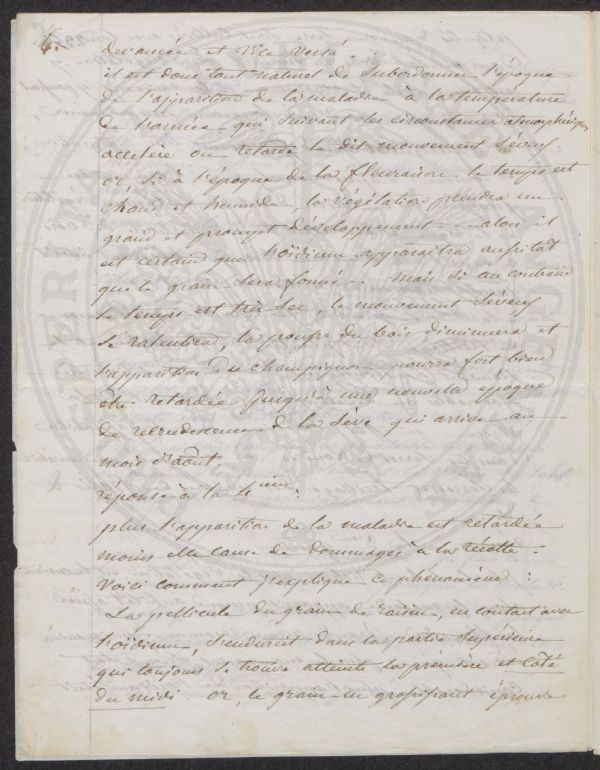 6.
der année et vice versa
il est donc tout naturel de subordonner l'époque
de l'apparition de la maladie à la température
de l'année qui suivant les circonstances atmosphériques
accelère ou retarde le dit mouvement séveux
or, si à l'époque de la fleuraison le temps est
chaud et humide la végétation prendra un
grand et prompt développement - alors il
est certain que l'oïdium apparaitra aussitot
que le grain sera formé. - mais si au contraire
le temps est très sec, le mouvement séveux
se ralentira, la pousse du bois diminuera et
l'apparition du champignon pourra fort bien
être retardée jusqu'à une nouvelle époque
de recrudescence de la sève qui arrive au
mois d'août.
réponse à la 4ieme :
plus l'apparition de la maladie est retardée
moins elle cause de dommages à la récolte.
Voici comment j'explique ce phénomène :
La pellicule du grain de raisin, en contact avec
l'oïdium, s'endurcit dans la partie supérieure
qui toujours se trouve atteinte la première et côté
du midi. or, le grain en grossissant éprouve